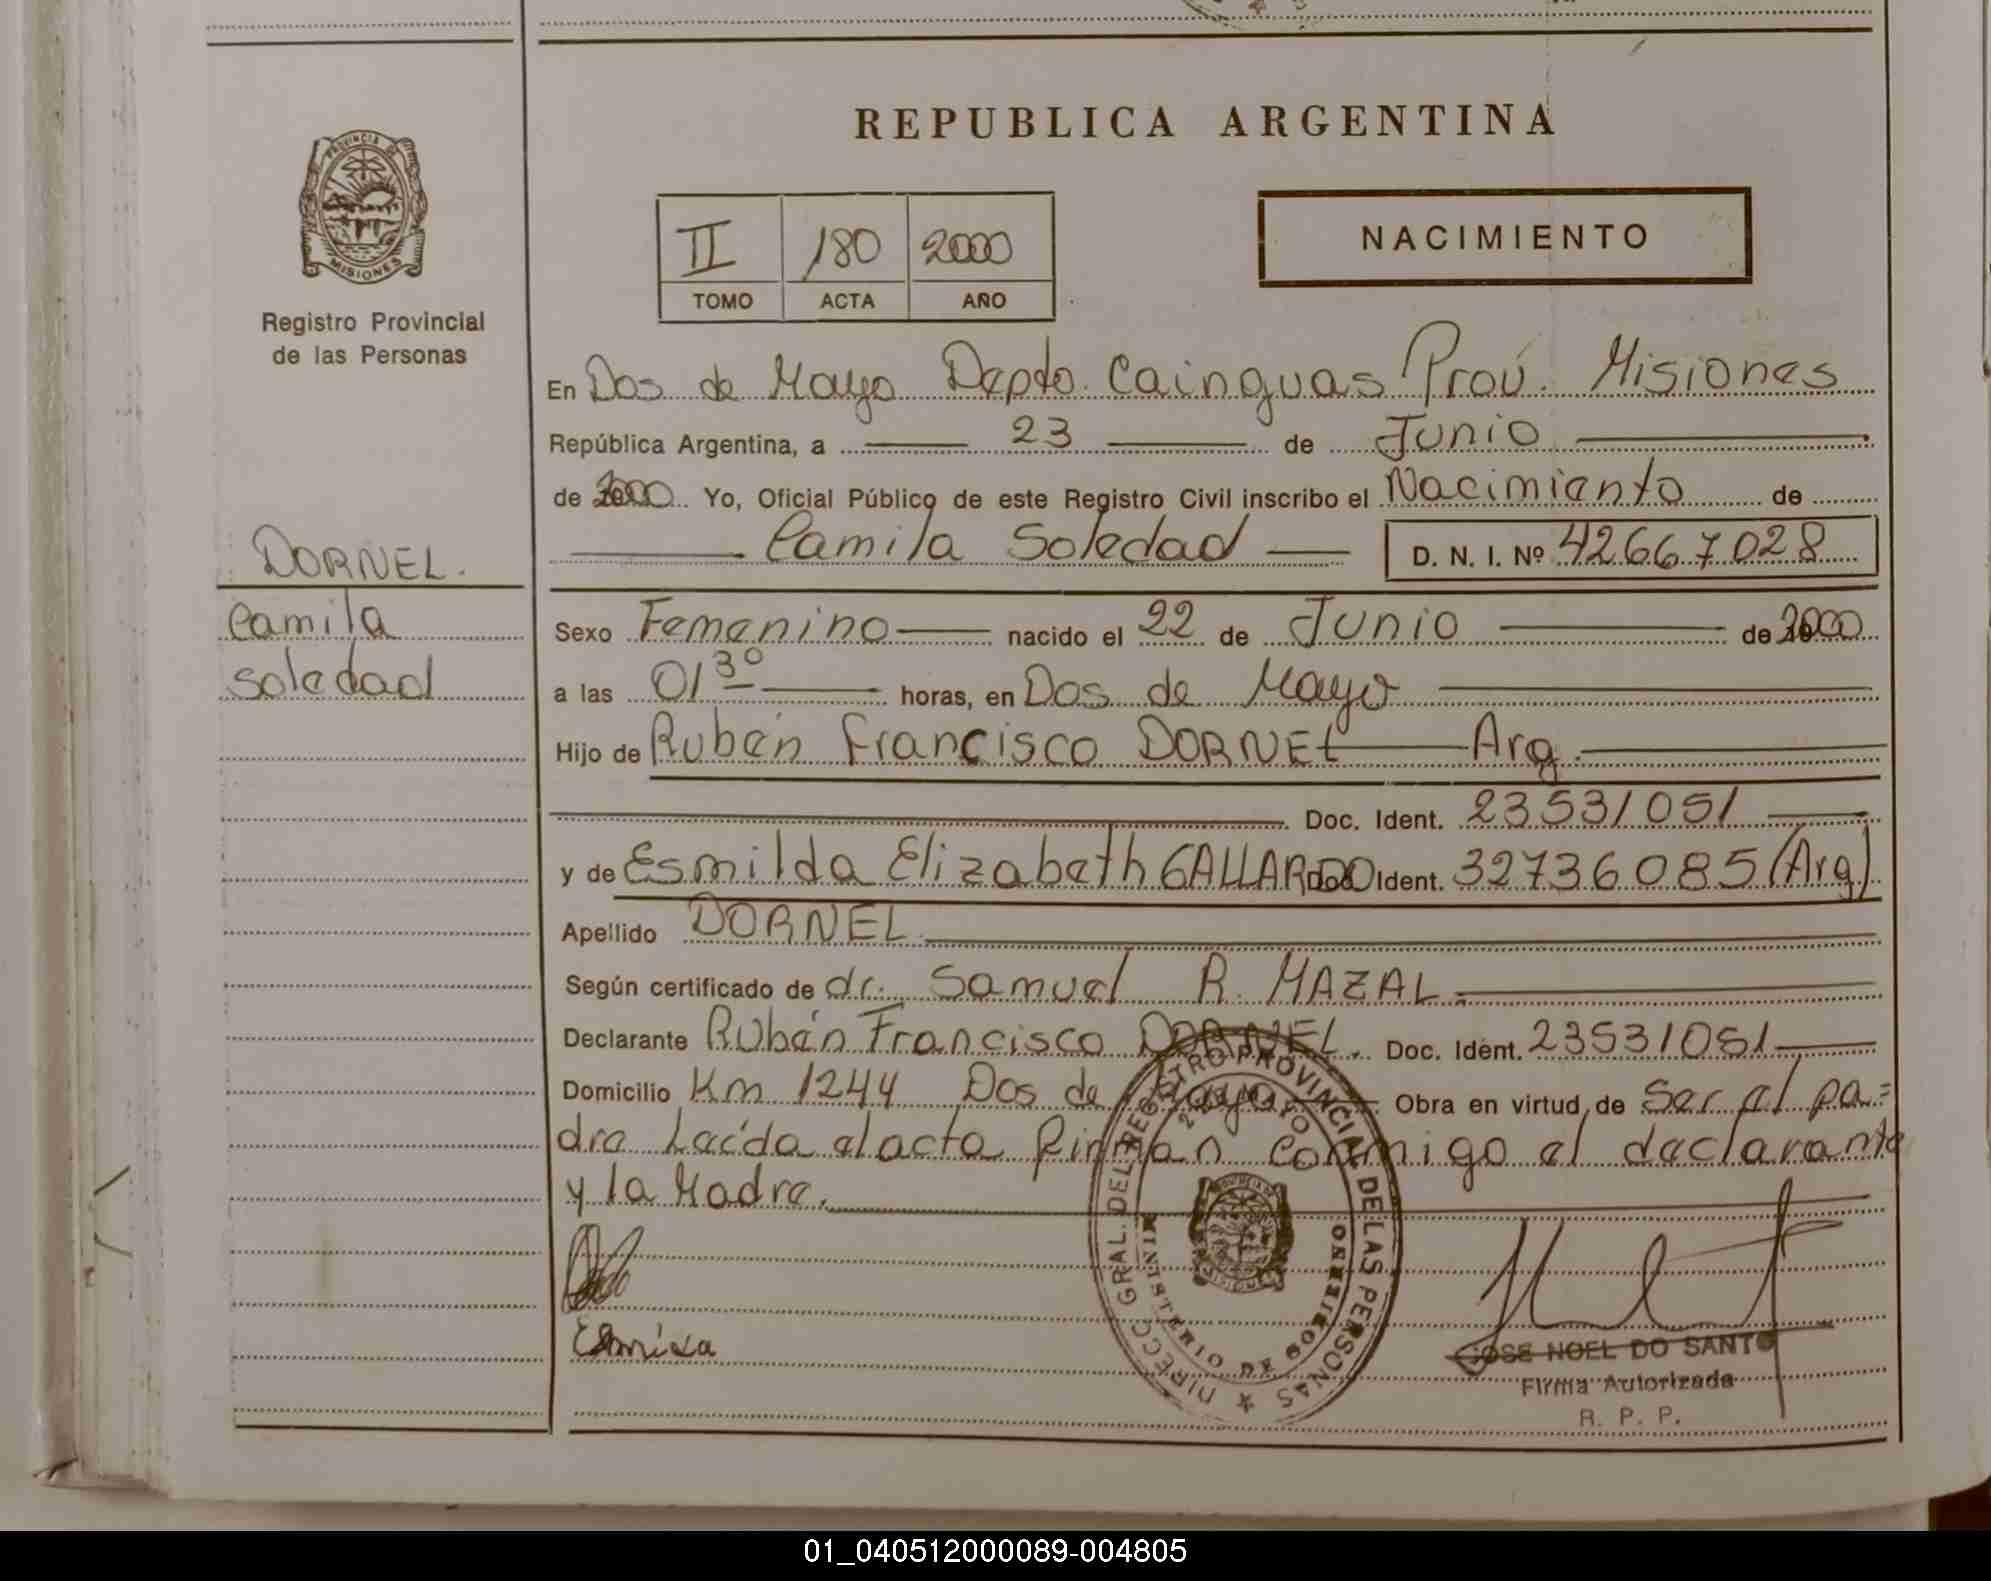 REPUBLICA ARGENTINA
PROVINCIA DE
MISIONES
Registro Provincial
de las Personas
II 180 2000
TOMO ACTA AÑO
NACIMIENTO
En Dos de Mayo Depto. Cainguas Prov. Misiones
República Argentina, a 23 de Junio
de 2000 Yo, Oficial Público de este Registro Civil inscribo el Nacimiento de
Camila Soledad D. N. I. Nº 42667028
DORNEL.
Camila
Soledad
Sexo Femenino nacido el 22 de Junio de 2000
a las 01 30 horas, en Dos de Mayo
Hijo de Rubén Francisco DORNEL Arg.
Doc. Ident. 23531051
y de Esmilda Elizabeth GALLARDO Doc Ident. 32736085 (Arg)
Apellido DORNEL
Según certificado de dr. Samuel R. MAZAL.
Declarante Rubén Francisco DORNEL. Doc. Idént. 23531051
Domicilio Km 1244 Dos de Mayo Obra en virtud de Ser el pa=
dre Leída el acta firman conmigo el declarante
y la Madre.
DIRECC GRAL. DEL REGISTRO PROVINCIAL DE LAS PERSONAS
2 DE MAYO
MINISTERIO DE GOBIERNO
MISIONES
JOSE NOEL DO SANTO
Firma Autorizada
R. P. P.
01_040512000089-004805